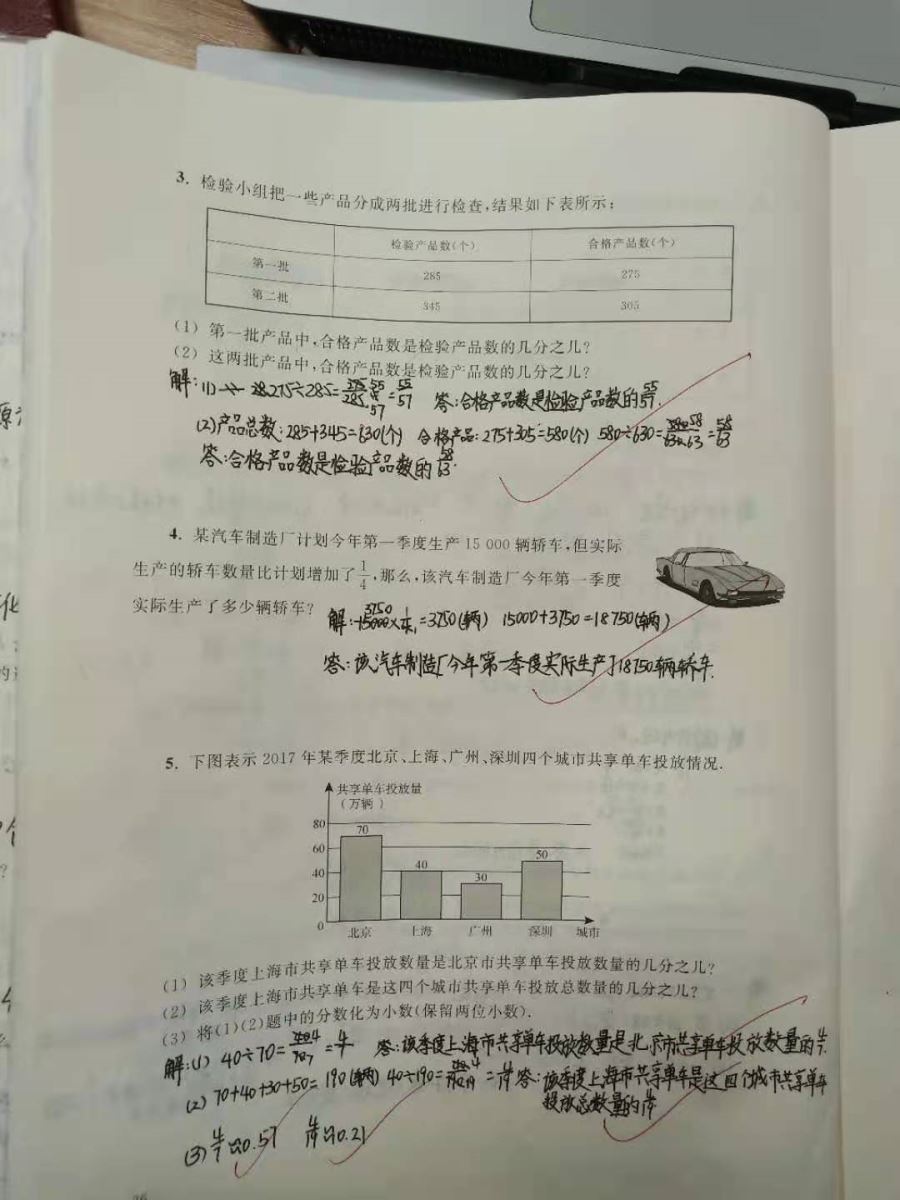 3. 检验小组把一些产品分成两批进行检查,结果如下表所示:
检验产品数(个) 合格产品数(个)
第一批 285 275
第二批 345 305
(1) 第一批产品中,合格产品数是检验产品数的几分之几?
(2) 这两批产品中,合格产品数是检验产品数的几分之几?
解:(1) 275÷285= 275/285 = 55/57 答:合格产品数是检验产品数的55/57.
(2)产品总数:285+345=630(个) 合格产品:275+305=580(个) 580÷630= 580/630 = 58/63
答:合格产品数是检验产品数的58/63.
4. 某汽车制造厂计划今年第一季度生产 15 000 辆轿车,但实际
生产的轿车数量比计划增加了1/4,那么,该汽车制造厂今年第一季度
实际生产了多少辆轿车?
解:15000× =3750(辆) 15000+3750=18750(辆)
答:该汽车制造厂今年第一季度实际生产了18750辆轿车.
5. 下图表示 2017 年某季度北京、上海、广州、深圳四个城市共享单车投放情况.
共享单车投放量
(万辆)
80
70
60
50
40
40
30
20
0
北京 上海 广州 深圳 城市
(1) 该季度上海市共享单车投放数量是北京市共享单车投放数量的几分之几?
(2) 该季度上海市共享单车是这四个城市共享单车投放总数量的几分之几?
(3) 将(1)(2)题中的分数化为小数(保留两位小数).
解:(1) 40÷70= 40/70 = 4/7 答:该季度上海市共享单车投放数量是北京市共享单车投放数量的4/7.
(2) 70+40+30+50=190(辆) 40÷190= 40/190 = 4/19 答:该季度上海市共享单车是这四个城市共享单车
投放总数量的4/19
(3) 4/7≈0.57 4/19≈0.21
36